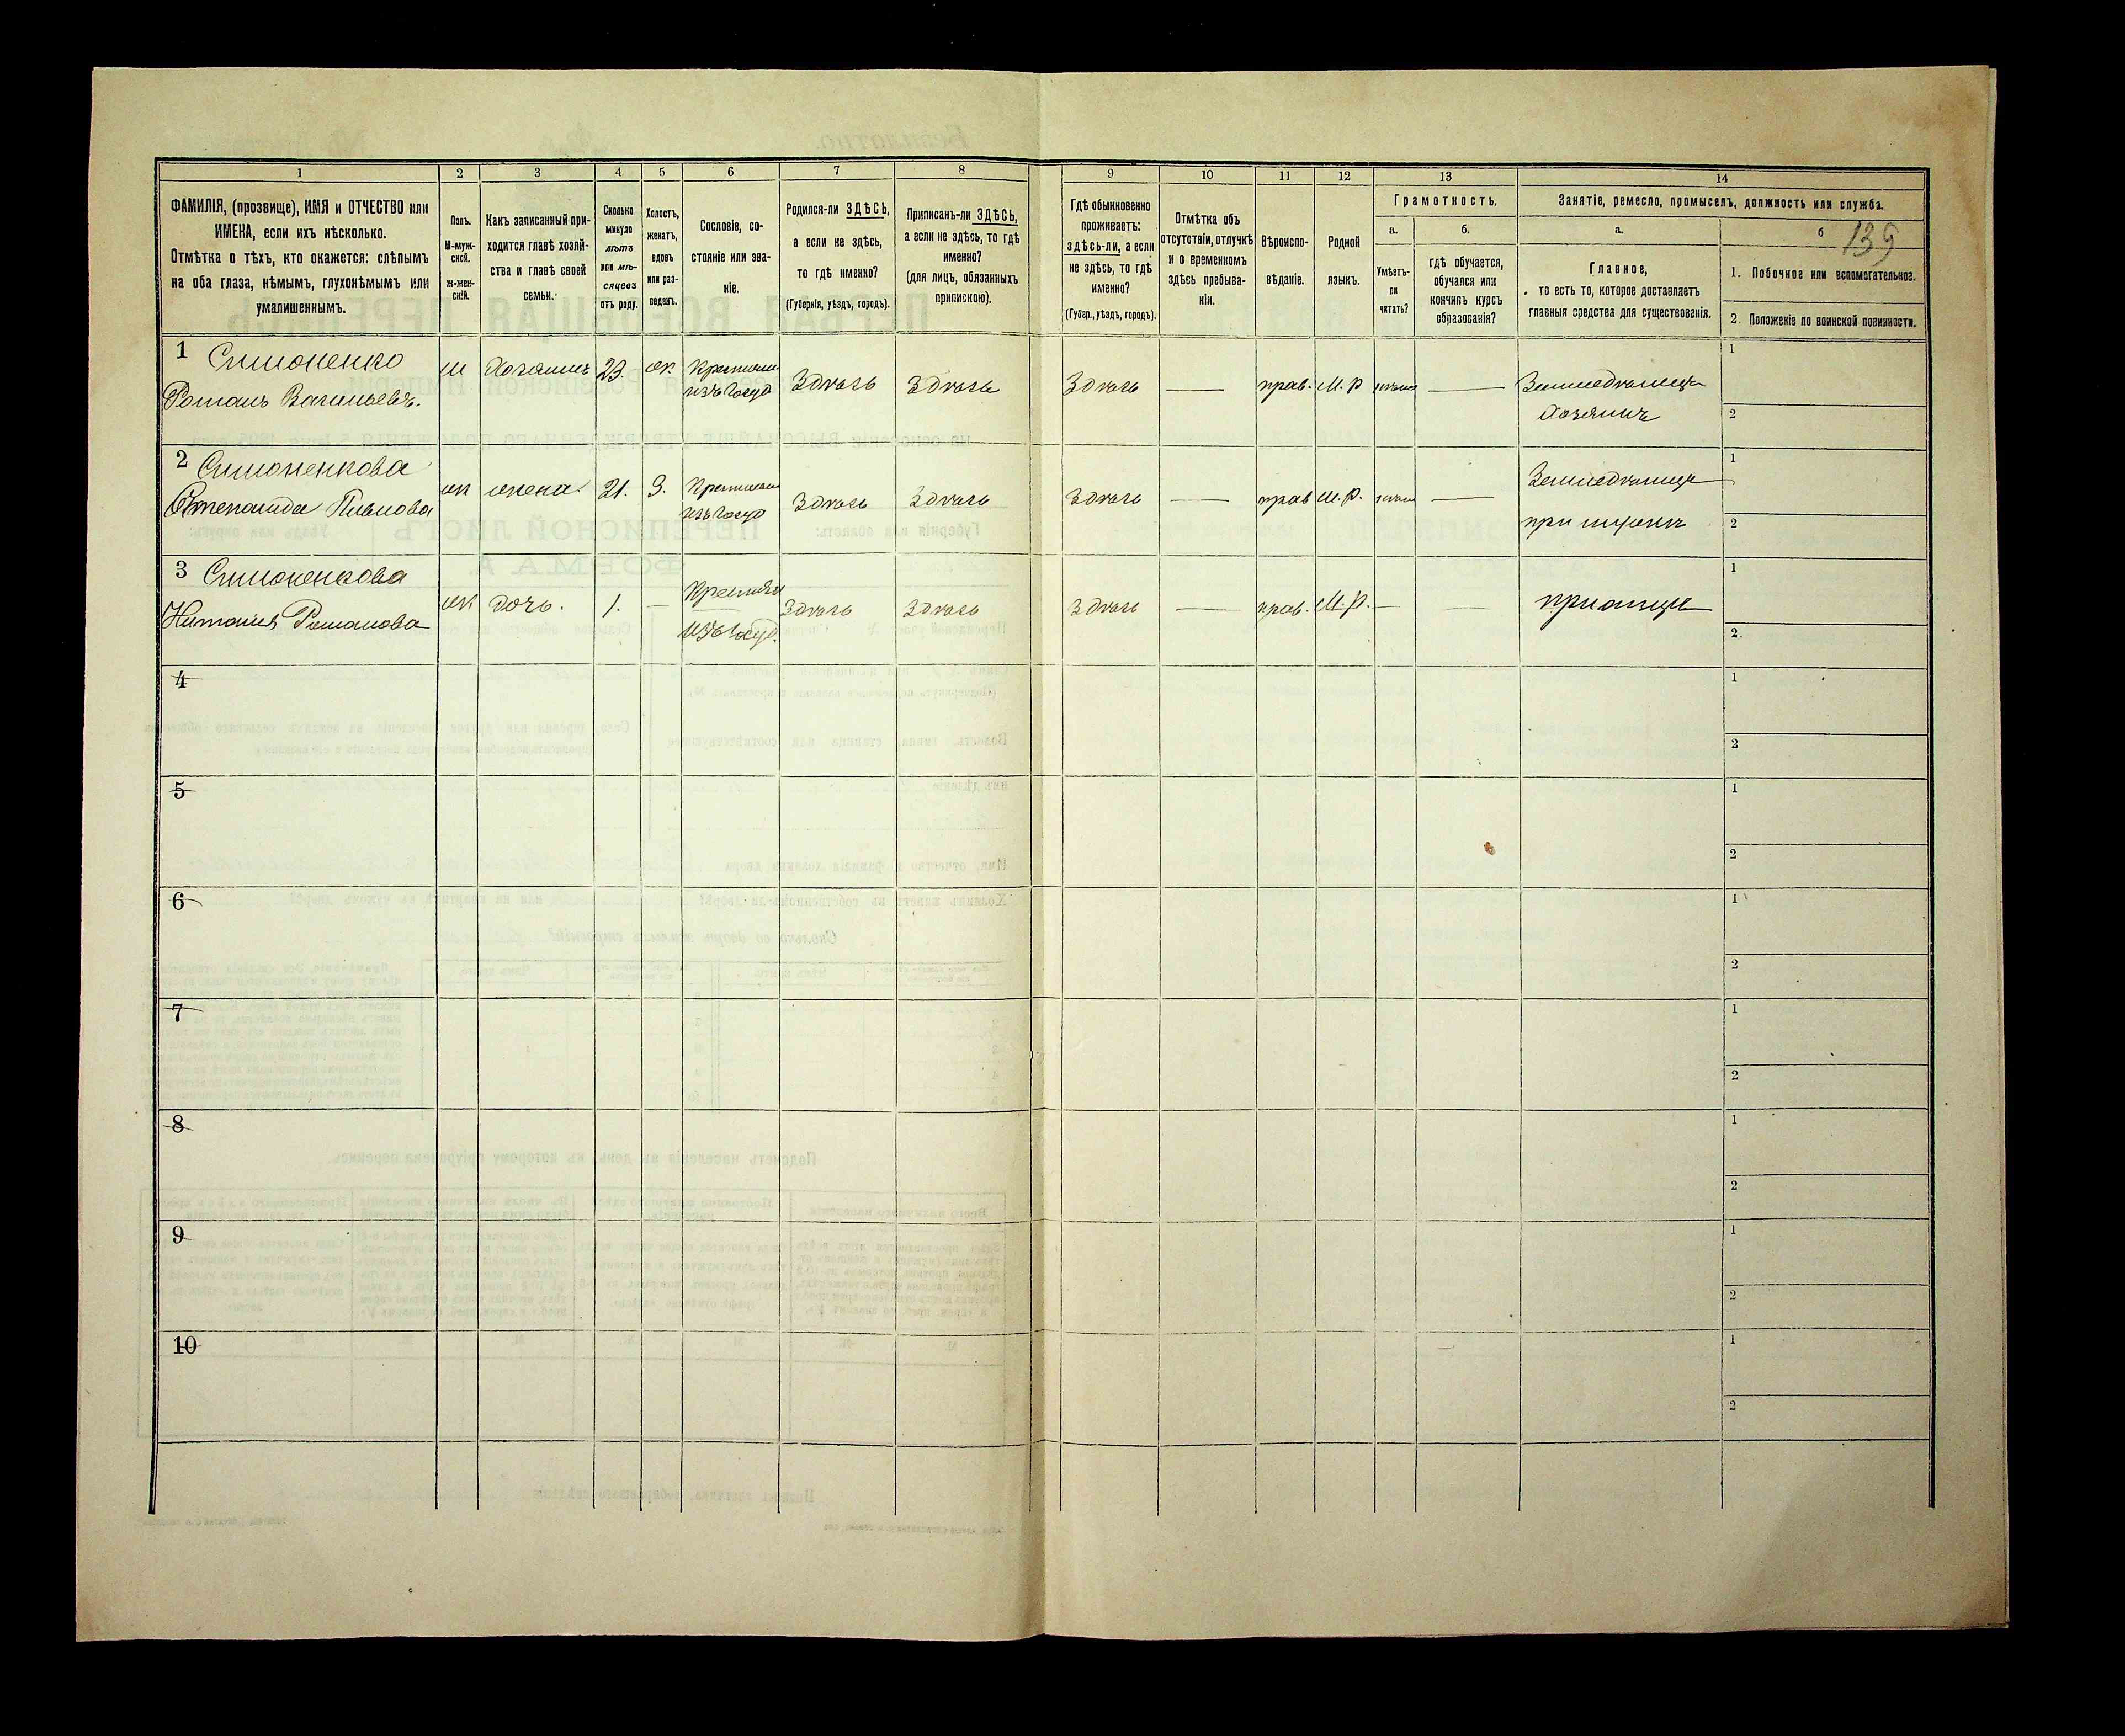 139
1 2 3 4 5 6 7 8 9 10 11 12 13 14
ФАМИЛІЯ, (прозвище), ИМЯ и ОТЧЕСТВО или
ИМЕНА, если ихъ нѣсколько.
Отмѣтка о тѣхъ, кто окажется: слѣпымъ
на оба глаза, нѣмымъ, глухонѣмымъ или
умалишеннымъ.
Полъ.
М-муж-
ской.
ж-жен-
скій.
Какъ записанный при-
ходится главѣ хозяй-
ства и главѣ своей
семьи.
Сколько
минуло
лѣтъ
или мѣ-
сяцевъ
отъ роду.
Холостъ,
женатъ,
вдовъ
или раз-
веденъ.
Сословіе, со-
стояніе или зва-
ніе.
Родился-ли ЗДѢСЬ,
а если не здѣсь,
то гдѣ именно?
(Губернія, уѣздъ, городъ).
Приписанъ-ли ЗДѢСЬ,
а если не здѣсь, то гдѣ
именно?
(для лицъ, обязанныхъ
припискою).
Гдѣ обыкновенно
проживаетъ:
здѣсь-ли, а если
не здѣсь, то гдѣ
именно?
(Губер., уѣздъ, городъ).
Отмѣтка объ
отсутствіи, отлучкѣ
и о временномъ
здѣсь пребыва-
ніи.
Вѣроиспо-
вѣданіе.
Родной
языкъ.
Грамотность.
а.
Умѣетъ-
ли
читать?
б.
гдѣ обучается,
обучался или
кончилъ курсъ
образованія?
Занятіе, ремесло, промыселъ, должность или служба.
а.
Главное,
то есть то, которое доставляетъ
главныя средства для существованія.
б
1. Побочное или вспомогательное.
2. Положеніе по воинской повинности.
1 Симоненко
Романъ Васильевъ.
м Хозяинъ 23 ж Крестьян
изъ Госуд
Здѣсь Здѣсь Здѣсь — прав. М.Р —
Земледѣлецъ
Хозяинъ
1
2
2 Симоненкова
Степанида Пи
ж жена. 21. З. Крестьян
изъ Госуд
Здѣсь Здѣсь Здѣсь — прав М.Р. —
Земледѣлецъ
при мужѣ
1
2
3 Симоненкова
Наталія Романова
ж дочь. 1. — Крестьян
изъ Госуд.
Здѣсь Здѣсь Здѣсь — прав. М.Р. — —
при отцѣ
1
2
4
1
2
5
1
2
6
1
2
7
1
2
8
1
2
9
1
2
10
1
2